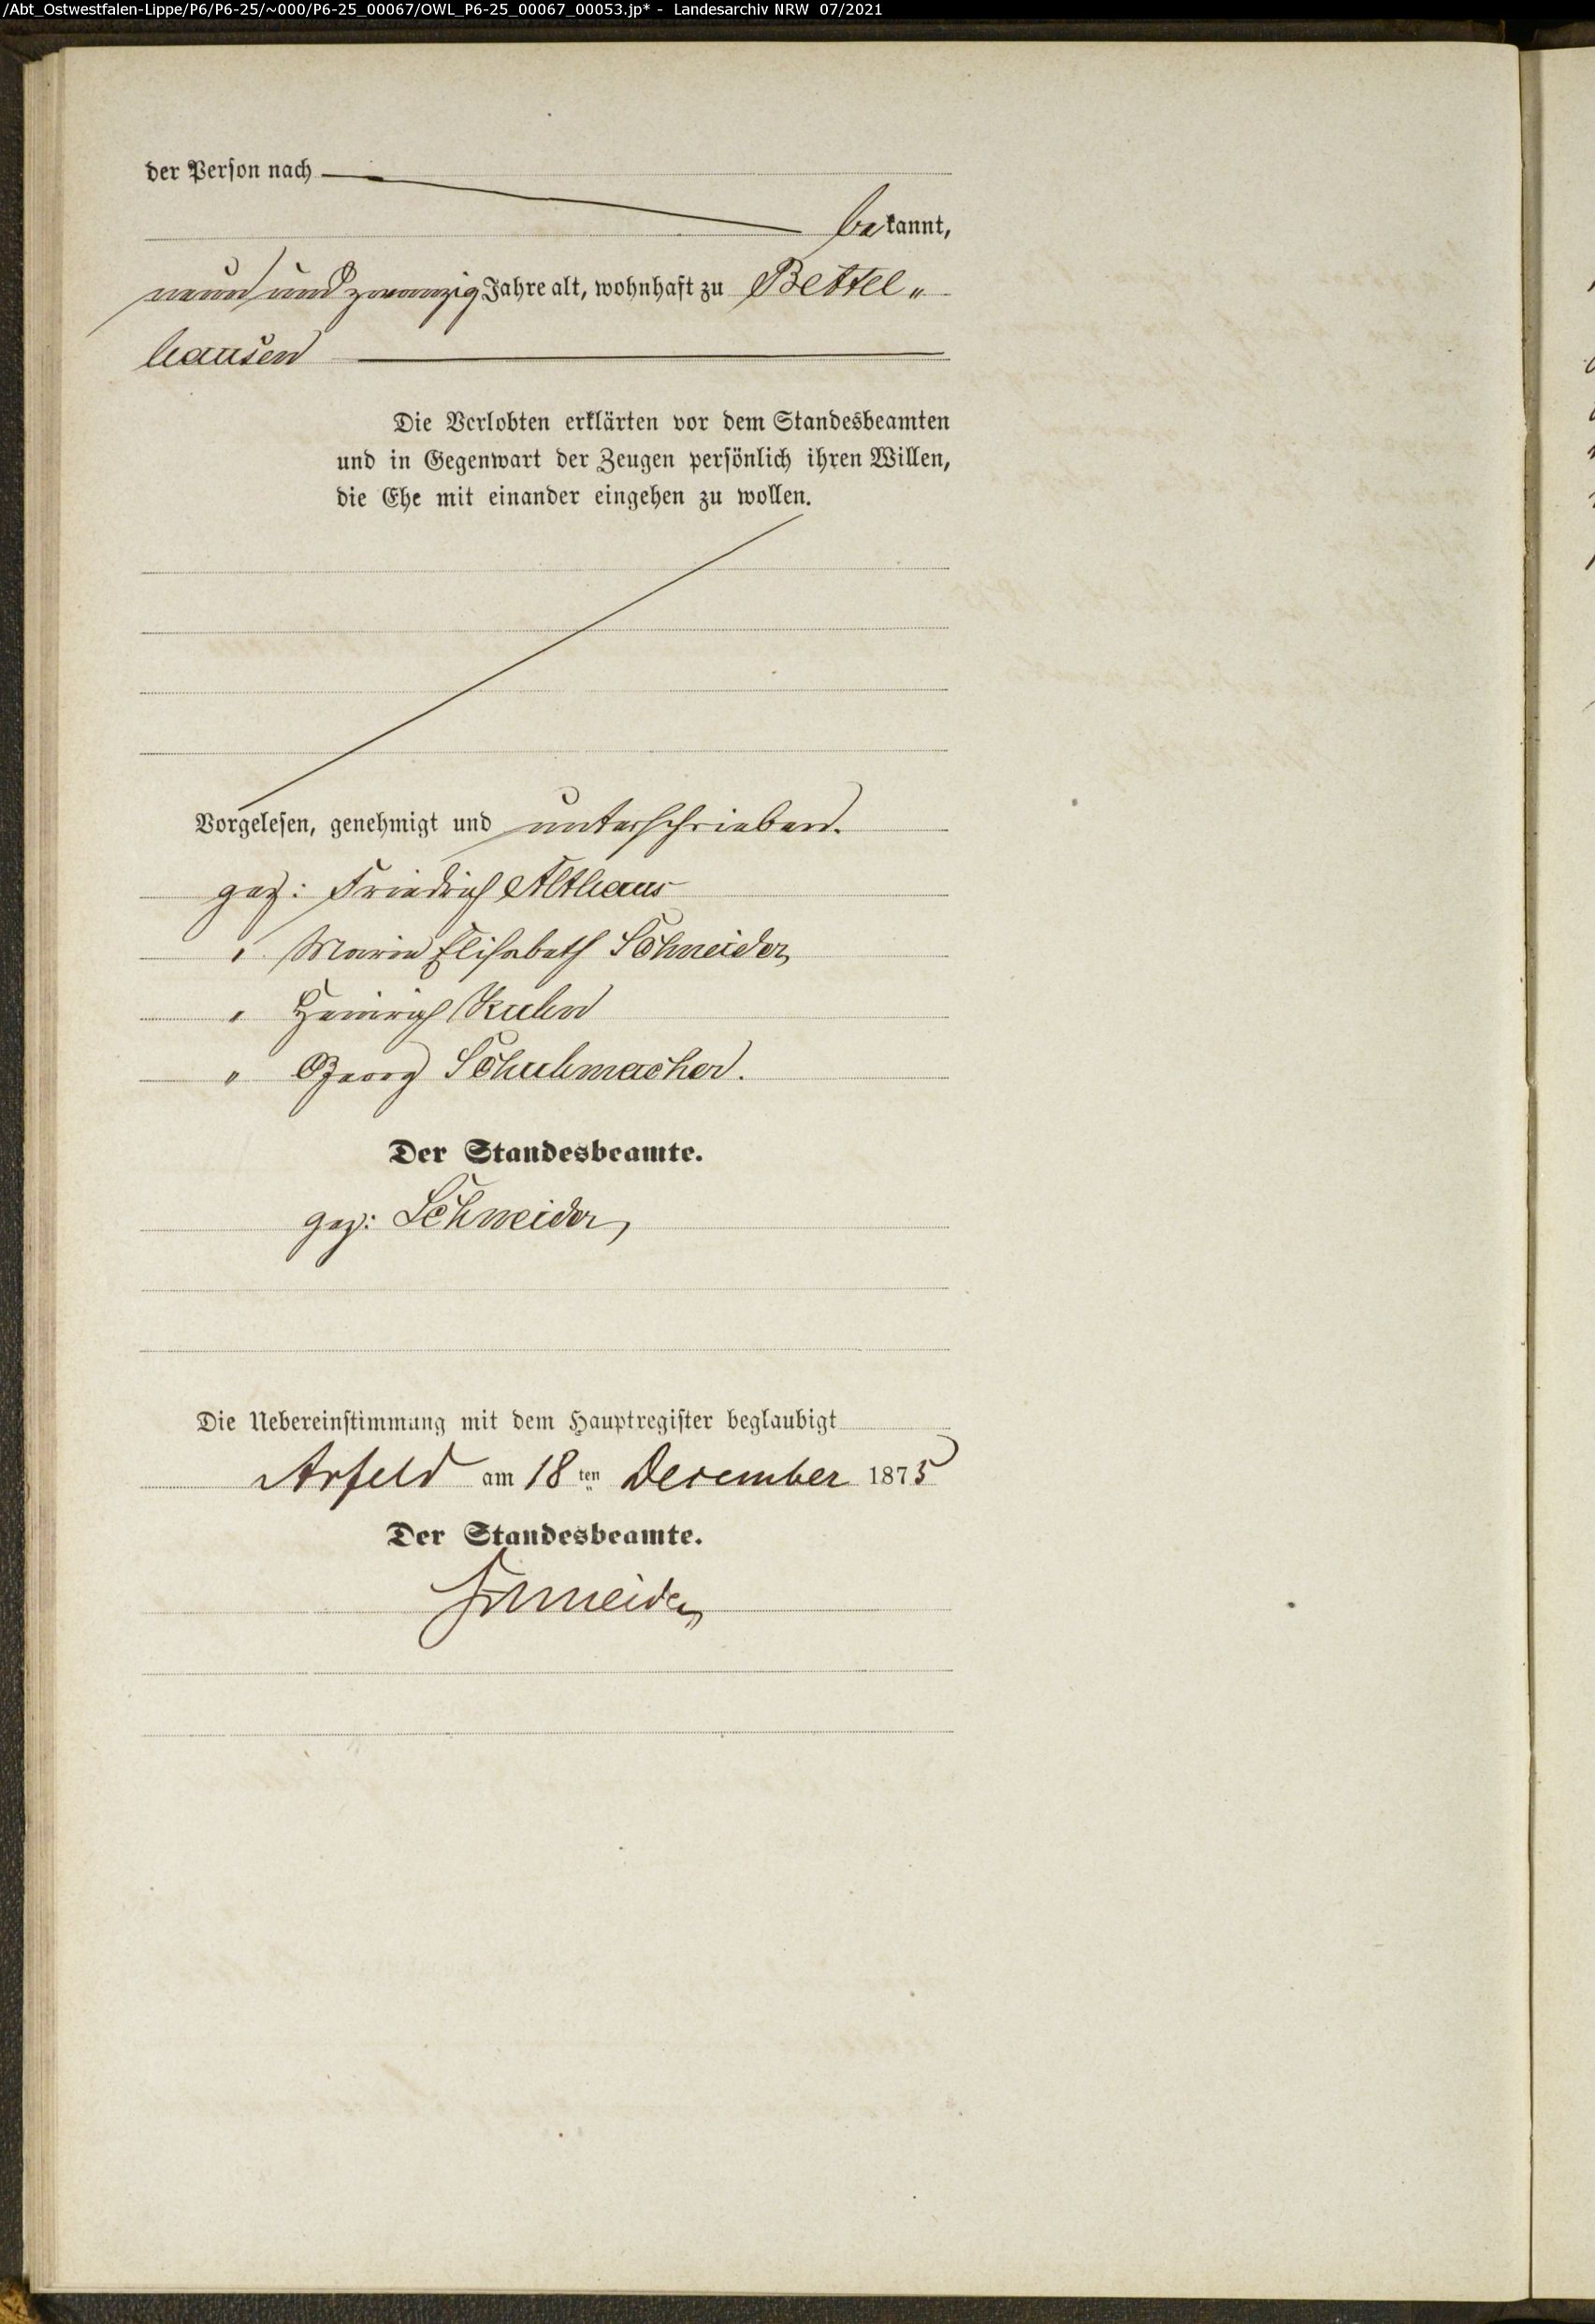 /Abt_Ostwestfalen-Lippe/P6/P6-25/~000/P6-25_00067/OWL_P6-25_00067_00053.jp* - Landesarchiv NRW 07/2021
der Person nach
bekannt,
neun und zwanzig Jahre alt, wohnhaft zu Bettel„
hausen
Die Verlobten erklärten vor dem Standesbeamten
und in Gegenwart der Zeugen persönlich ihren Willen,
die Ehe mit einander eingehen zu wollen.
Vorgelesen, genehmigt und unterschrieben.
gez: Friedrich Althaus
" Maria Elisabeth Schneider
" Heinrich Kuhn
" Georg Schuhmacher.
Der Standesbeamte.
gez: Schneider,
Die Uebereinstimmung mit dem Hauptregister beglaubigt
Arfeld am 18 ten December 1875
Der Standesbeamte.
Schneider